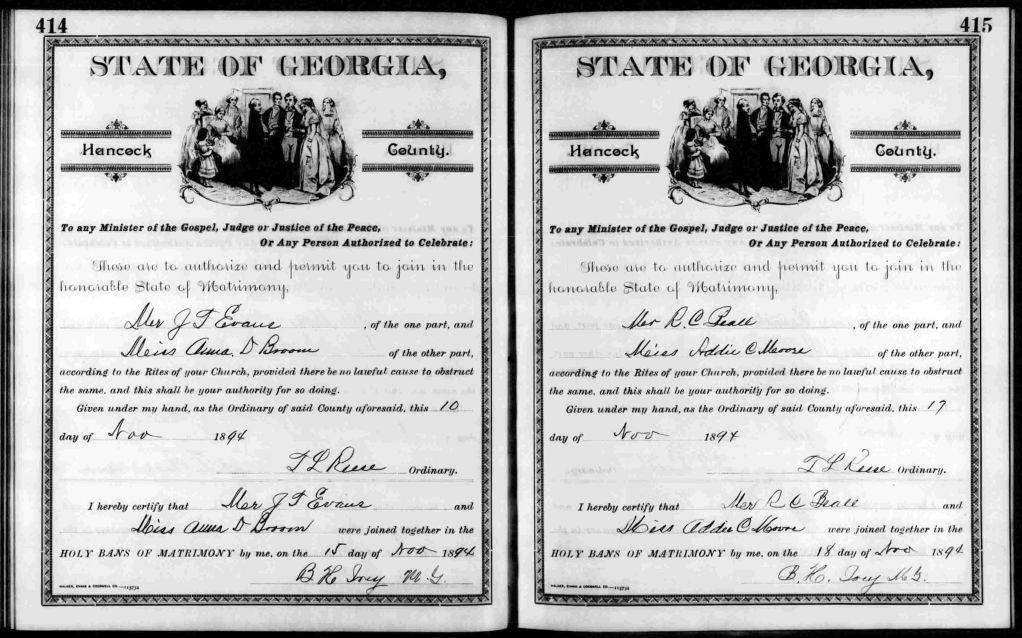 414
STATE OF GEORGIA,
Hancock County.
To any Minister of the Gospel, Judge or Justice of the Peace,
Or Any Person Authorized to Celebrate:
These are to authorize and permit you to join in the
honorable State of Matrimony,
Mr J T Evans , of the one part, and
Miss Anna. D Broom of the other part,
according to the Rites of your Church, provided there be no lawful cause to obstruct
the same, and this shall be your authority for so doing.
Given under my hand, as the Ordinary of said County aforesaid, this 10
day of Nov 1894
T L Reese Ordinary.
I hereby certify that Mr J T Evans and
Miss Anna D Broom were joined together in the
HOLY BANS OF MATRIMONY by me, on the 15 day of Nov 1894
B H Ivey M G.
WALKER, EVANS & COGSWELL CO.—113732
415
STATE OF GEORGIA,
Hancock County.
To any Minister of the Gospel, Judge or Justice of the Peace,
Or Any Person Authorized to Celebrate:
These are to authorize and permit you to join in the
honorable State of Matrimony,
Mr R. C Beall , of the one part, and
Miss Addie C Moore of the other part,
according to the Rites of your Church, provided there be no lawful cause to obstruct
the same, and this shall be your authority for so doing.
Given under my hand, as the Ordinary of said County aforesaid, this 17
day of Nov 1894
T L Reese Ordinary.
I hereby certify that Mr R C Beall and
Miss Addie C Moore were joined together in the
HOLY BANS OF MATRIMONY by me, on the 18 day of Nov 1894
B. H. Ivey M G.
WALKER, EVANS & COGSWELL CO.—113732